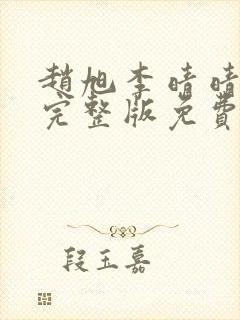 趙旭李晴晴
完整版免費
段玉嘉